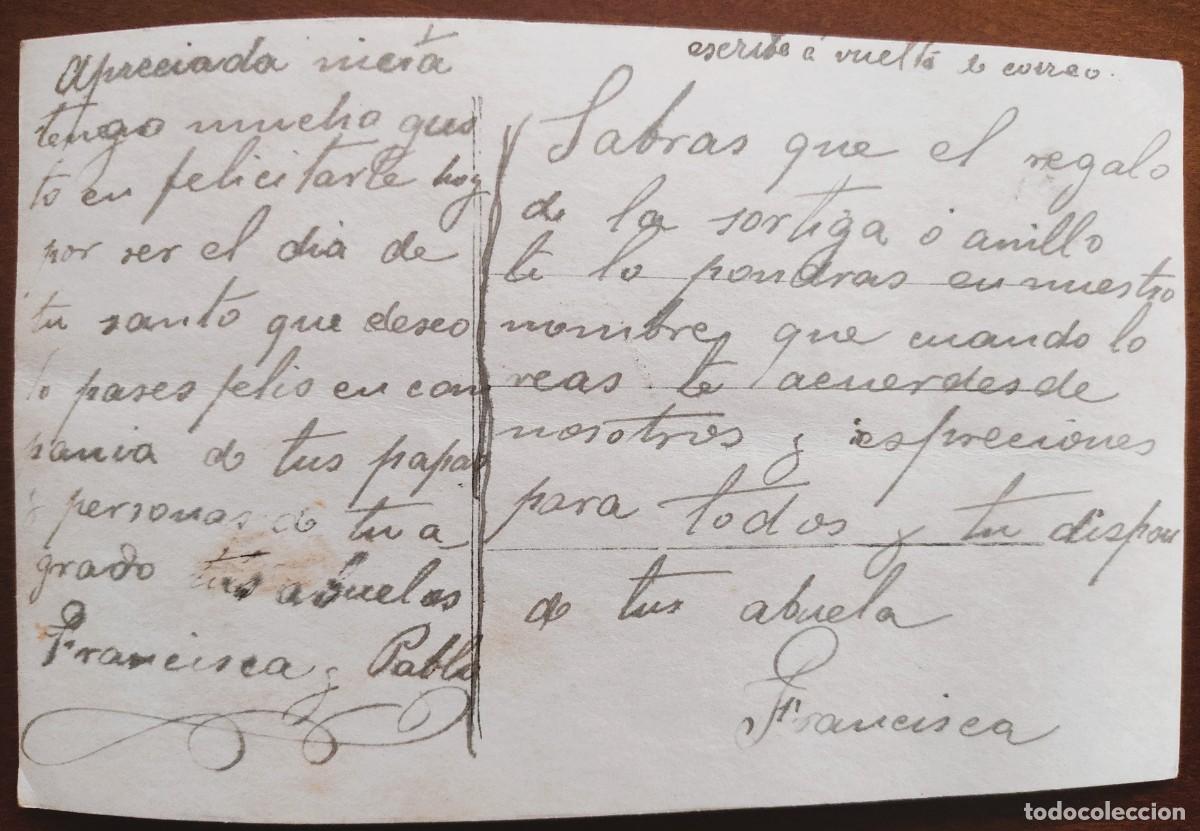 Apreciada nieta
tengo mucho gus
to en felicitarte hoy
por ser el dia de
tu santo que deseo
lo pases felis en com
pania de tus papas
y personas de tu a
grado tus abuelos
Francisca y Pablo
escribe á vuelta de correo.
Sabras que el regalo
de la sortiga ó anillo
te lo pondras en nuestro
nombre y que cuando lo
veas te acuerdes de
nosotros y espreciones
para todos y tu dispon
de tus abuela
Francisca
todocoleccion